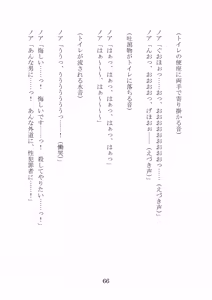 （トイレの便座に両手で寄り掛かる音）
ノア「ぐおほぉっ……おおおおおおおっ……（えづき声）
ノア「んおっ、おおおっ、げほおぉ……（えづき声）
（吐瀉物がトイレに落ちる音）
ノア「はぁっ、はぁっ、はぁっ、はぁっ、
ノア「はぁ～～、はぁ～～」
（トイレが流される水音）
ノア「ううっ、うううううううっ……！（慟哭）
ノア「悔しい……っ！　悔しいです……っ！　殺してやりたい……っ！
ノア「あんな男に……っ！　あんな外道に、性犯罪者に……！」
66